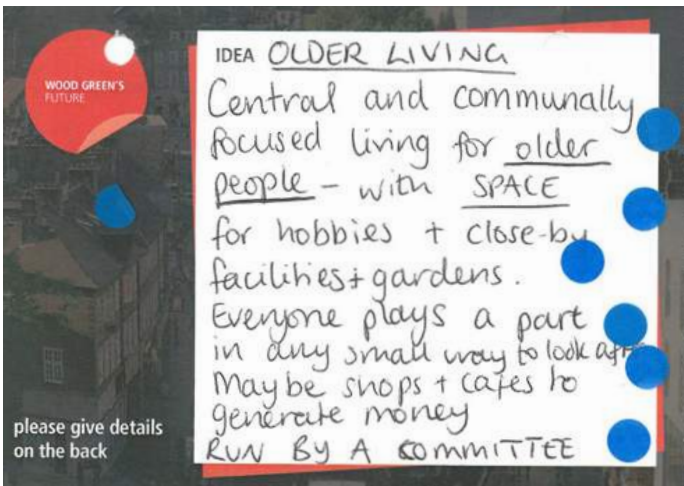 WOOD GREEN'S
FUTURE
IDEA OLDER LIVING
Central and communally
focused living for older
people - with SPACE
for hobbies + close-by
facilities + gardens.
Everyone plays a part
in any small way to look after
Maybe shops + cafes to
generate money
RUN BY A COMMITTEE
please give details
on the back